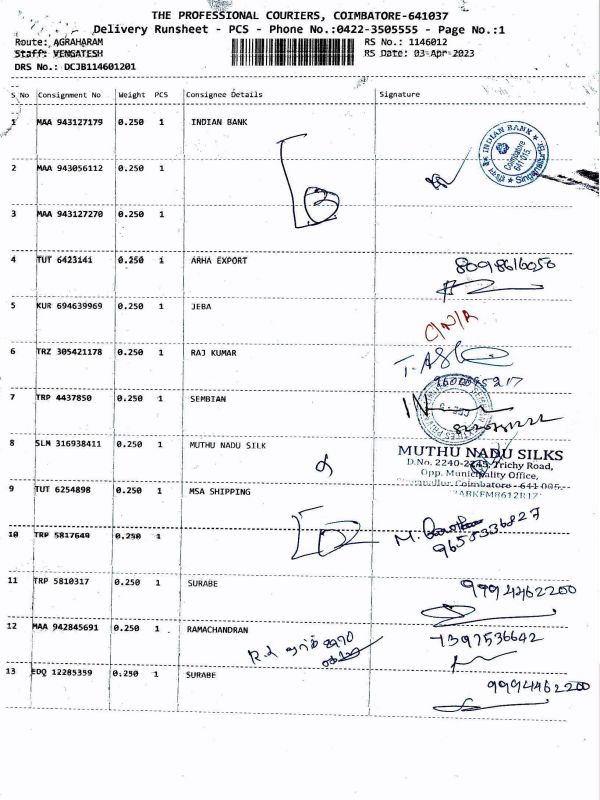 THE PROFESSIONAL COURIERS, COIMBATORE-641037
Delivery Runsheet - PCS - Phone No.:0422-3505555 - Page No.:1
Route: AGRAHARAM RS No.: 1146012
Staff: VENGATESH RS Date: 03-Apr-2023
DRS No.: DCJB114601201
S No Consignment No Weight PCS Consignee Details Signature
1 MAA 943127179 0.250 1 INDIAN BANK
INDIAN BANK
Coimbatore
641 015.
2 MAA 943056112 0.250 1
3 MAA 943127270 0.250 1
3
4 TUT 6423141 0.250 1 ARHA EXPORT
8098616050
5 KUR 694639969 0.250 1 JEBA
C/N/A
6 TRZ 305421178 0.250 1 RAJ KUMAR
7 TRP 4437850 0.250 1 SEMBIAN
8 SLM 316938411 0.250 1 MUTHU NADU SILK
MUTHU NADU SILKS
Trichy Road,
Opp. Municipality Office,
9 TUT 6254898 0.250 1 MSA SHIPPING
10 TRP 5817649 0.250 1
M.
9658336827
11 TRP 5810317 0.250 1 SURABE
9994462200
12 MAA 942845691 0.250 1 RAMACHANDRAN
7397536642
13 EDQ 12285359 0.250 1 SURABE
9994462200